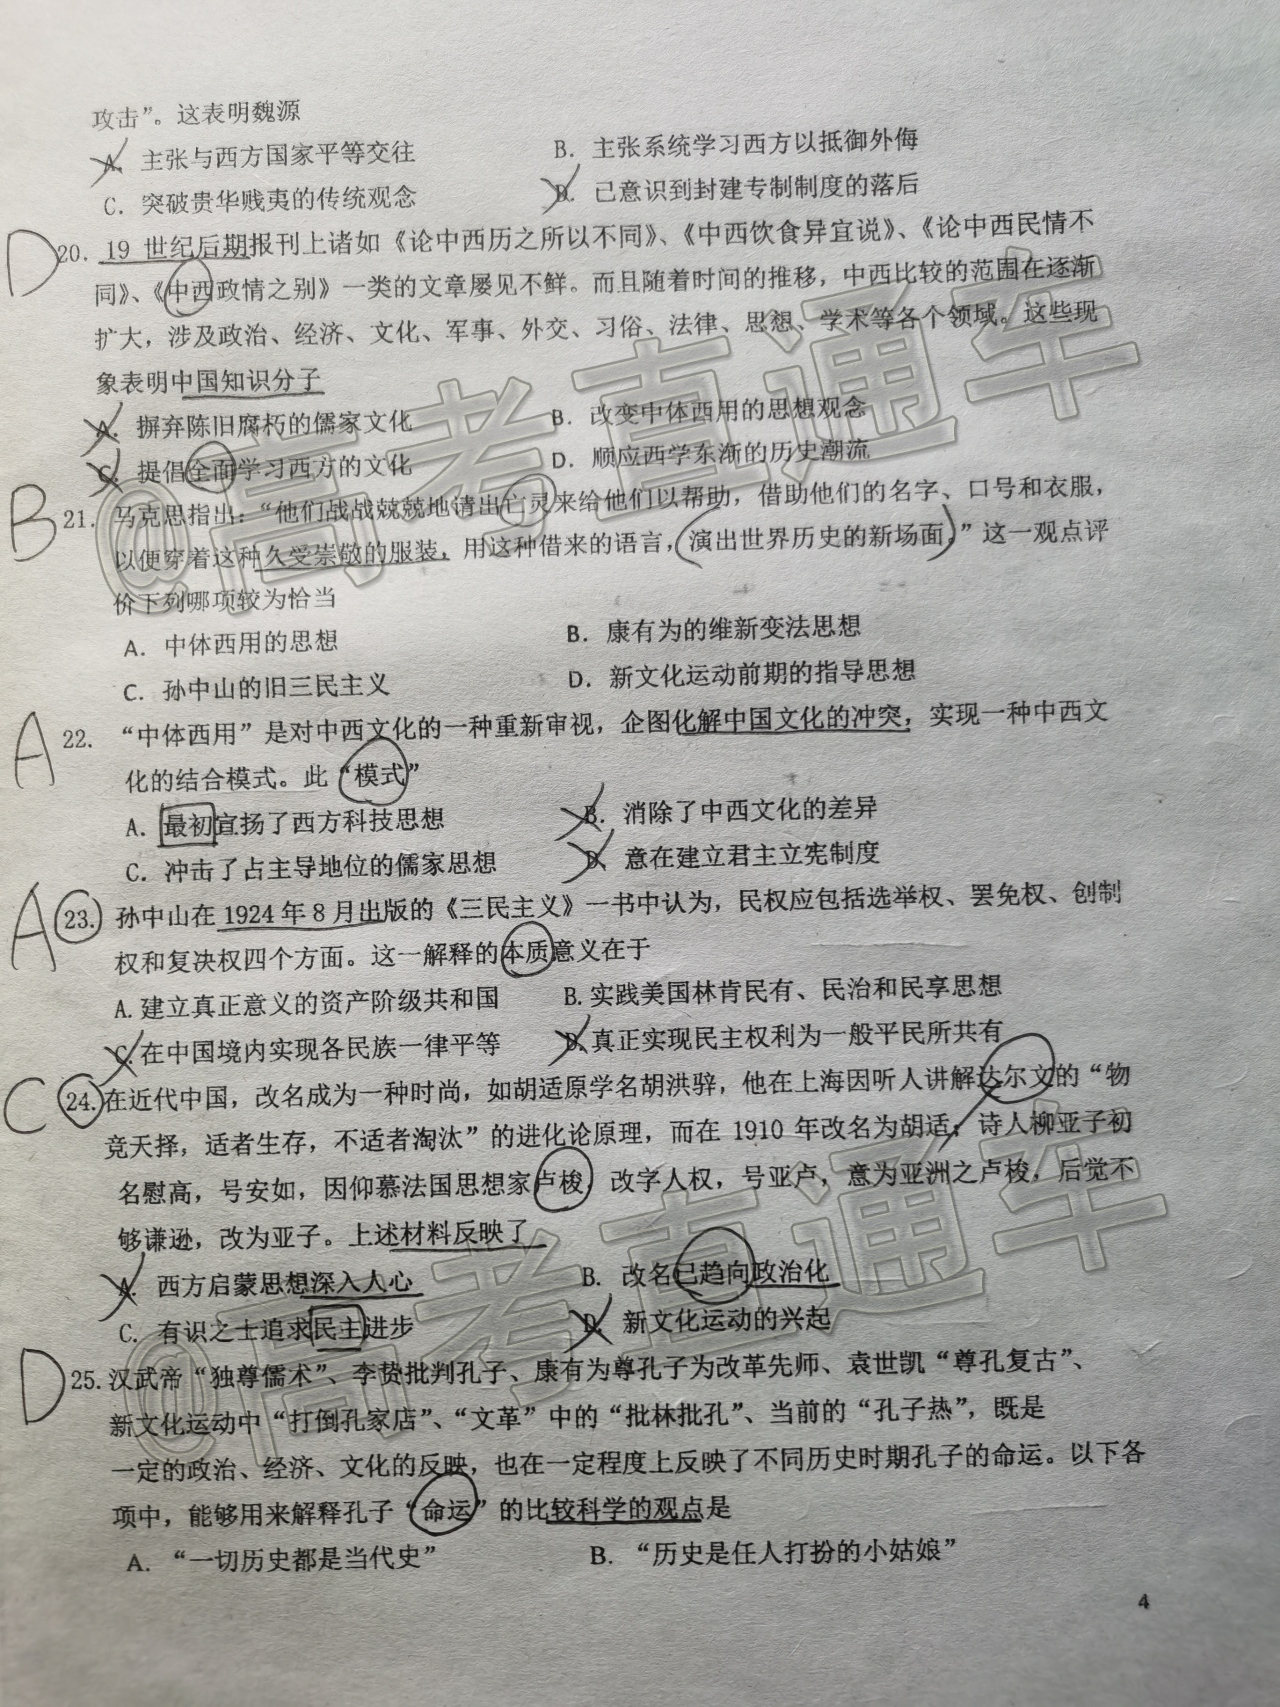 攻击”。这表明魏源
A. 主张与西方国家平等交往 B. 主张系统学习西方以抵御外侮
C. 突破贵华贱夷的传统观念 D. 已意识到封建专制制度的落后
D 20. 19 世纪后期报刊上诸如《论中西历之所以不同》、《中西饮食异宜说》、《论中西民情不
同》、《中西政情之别》一类的文章屡见不鲜。而且随着时间的推移，中西比较的范围在逐渐
扩大，涉及政治、经济、文化、军事、外交、习俗、法律、思想、学术等各个领域。这些现
象表明中国知识分子
A. 摒弃陈旧腐朽的儒家文化 B. 改变中体西用的思想观念
C. 提倡全面学习西方的文化 D. 顺应西学东渐的历史潮流
B 21. 马克思指出：“他们战战兢兢地请出亡灵来给他们以帮助，借助他们的名字、口号和衣服，
以便穿着这种久受崇敬的服装，用这种借来的语言，演出世界历史的新场面，”这一观点评
价下列哪项较为恰当
A. 中体西用的思想 B. 康有为的维新变法思想
C. 孙中山的旧三民主义 D. 新文化运动前期的指导思想
A 22. “中体西用”是对中西文化的一种重新审视，企图化解中国文化的冲突，实现一种中西文
化的结合模式。此“模式”
A. 最初宣扬了西方科技思想 B. 消除了中西文化的差异
C. 冲击了占主导地位的儒家思想 D. 意在建立君主立宪制度
A 23. 孙中山在 1924 年 8 月出版的《三民主义》一书中认为，民权应包括选举权、罢免权、创制
权和复决权四个方面。这一解释的本质意义在于
A. 建立真正意义的资产阶级共和国 B. 实践美国林肯民有、民治和民享思想
C. 在中国境内实现各民族一律平等 D. 真正实现民主权利为一般平民所共有
C 24. 在近代中国，改名成为一种时尚，如胡适原学名胡洪骍，他在上海因听人讲解达尔文的“物
竞天择，适者生存，不适者淘汰”的进化论原理，而在 1910 年改名为胡适；诗人柳亚子初
名慰高，号安如，因仰慕法国思想家卢梭，改字人权，号亚卢，意为亚洲之卢梭，后觉不
够谦逊，改为亚子。上述材料反映了
A. 西方启蒙思想深入人心 B. 改名已趋向政治化
C. 有识之士追求民主进步 D. 新文化运动的兴起
D 25. 汉武帝“独尊儒术”、李贽批判孔子、康有为尊孔子为改革先师、袁世凯“尊孔复古”、
新文化运动中“打倒孔家店”、“文革”中的“批林批孔”、当前的“孔子热”，既是
一定的政治、经济、文化的反映，也在一定程度上反映了不同历史时期孔子的命运。以下各
项中，能够用来解释孔子“命运”的比较科学的观点是
A. “一切历史都是当代史” B. “历史是任人打扮的小姑娘”
4
@高考直通车
@高考直通车